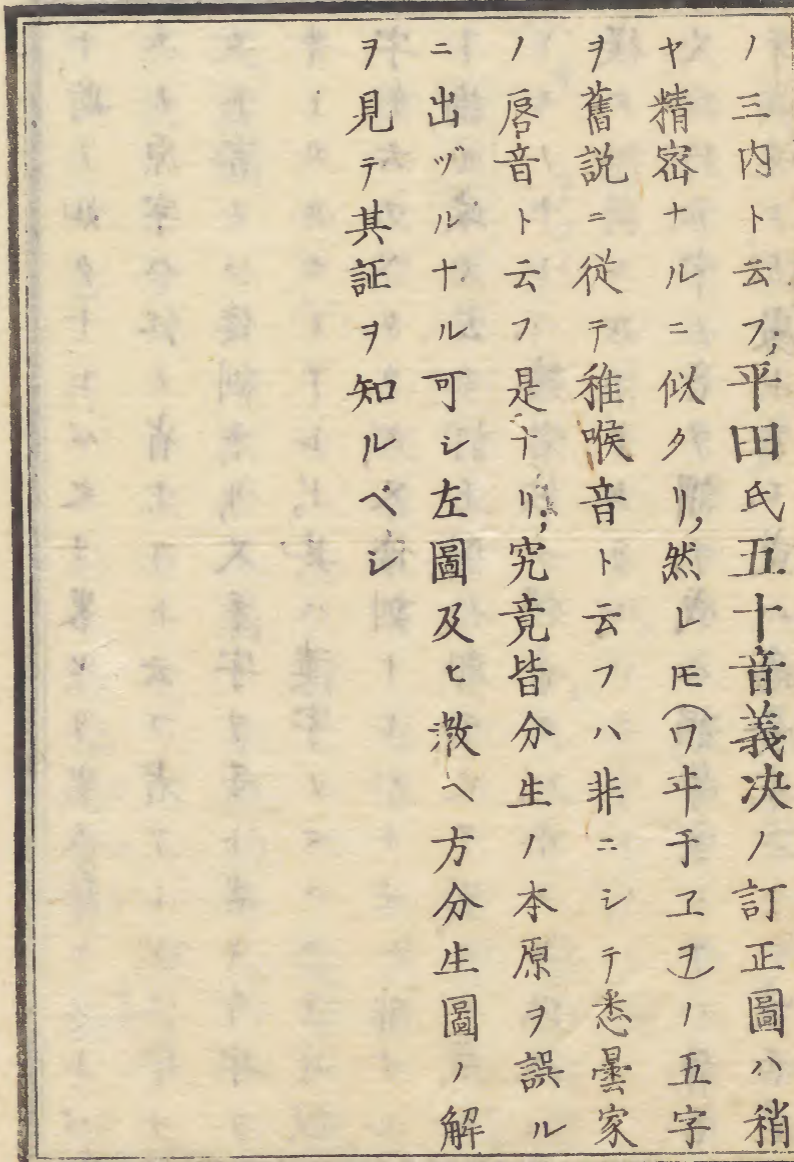 ノ三内ト云フ;平田氏五十音義決ノ訂正圖ハ稍
ヤ精密ナルニ似タリ,然レ𪜈(ワヰ于ヱヲ)ノ五字
ヲ舊説ニ従テ稚喉音ト云フハ非ニシテ悉曇家
ノ唇音ト云フ是ナリ;究竟皆分生ノ本原ヲ誤ル
ニ出ヅルナル可シ左圖及ヒ教ヘ方分生圖ノ解
ヲ見テ其証ヲ知ルベシ